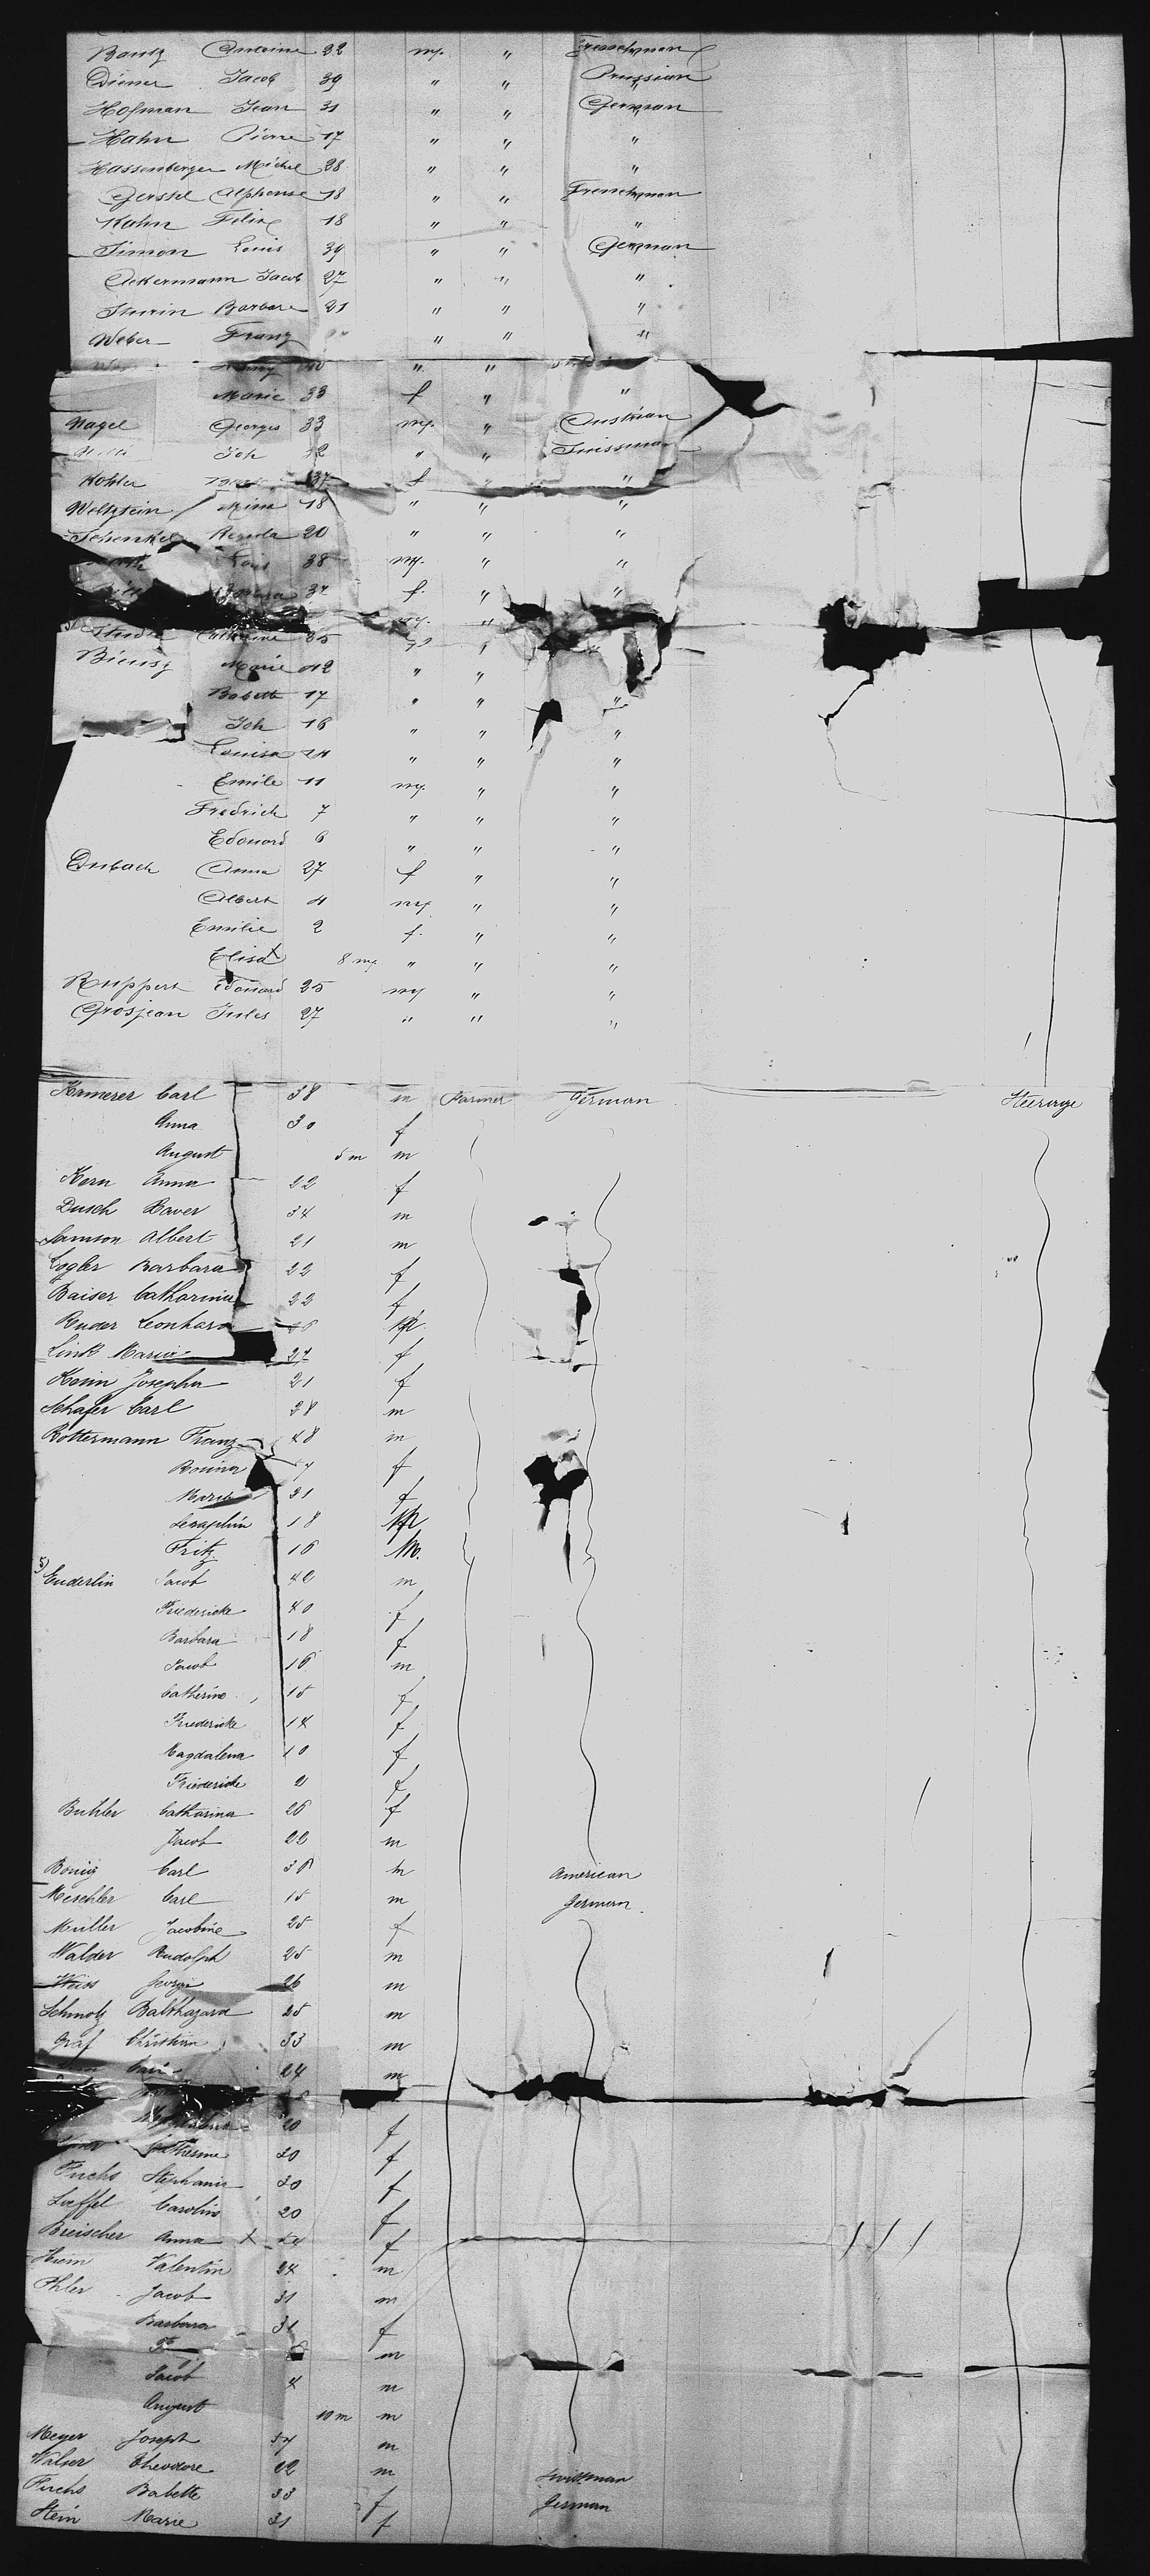 Bantz Antoine 32 m. " Frenchman
Diener Jacob 39 " " Prussian
Hofman Jean 31 " " German
Hahn Pierre 17 " " "
Hassenberger Michel 28 " " "
Gerstel Alphonse 18 " " Frenchman
Kahn Felix 18 " " "
Simon Louis 39 " " German
Ackermann Jacob 27 " " "
Barbara 21 " " "
Weber Franz " " "
" "
Marie 33 f " "
Nagel Georges 33 m. " Austrian
Joh " " Swissman
Kohler 37 f " "
Weltztein Mina 18 " " "
Schenkel Rosula 20 " " "
Louis 38 m. " "
37 f. " "
m. "
Studer Catherine 35 f "
Biensz Marie 42 " "
Babette 17 " " "
Joh 16 " " "
Louisa " " "
Emile 11 m. " "
Fredrich 7 " " "
Edouard 6 " " "
Dubach Anna 27 f " "
Albert 4 m " "
Emilie 2 f. " "
Elisa X 8 m " " "
Ruppert Edouard 25 m " "
Grosjean Jules 27 " " "
Kamerer Carl 38 m Farmer German Steerage
Anna 30 f
August 5 m m
Kern Anna 22 f
Dusch Xaver 34 m
Samson Albert 21 m
Logler Barbara 22 f
Baiser Catharina 22 f
Ruder Leonhard
Link Maria 27 f
Kesin Josepha 21 f
Schafer Carl 38 m
Rottermann Franz 48 m
Rosina f
Maria 21 f
Seraphin 18
Fritz 16 M.
5) Enderlin Jacob 42 m
Friedericke 40 f
Barbara 18 f
Jacob 16 m
Catherine 15 f
Friedericke 14 f
Magdalena 10 f
Friedericke 2 f
Buhler Catharina 26 f
Jacob 22 m
Bonig Carl 36 m American
Meschler Carl 15 m German
Muller Jacobine 25 f
Walder Rudolph 25 m
Weiss George 26 m
Schmotz Balthazard 25 m
Graf Christian 33 m
24 m
20 f
Catherine 20 f
Fuchs Stephanie 30 f
Loeffel Carolin 20 f
Breischer Anna X f
Heim Valentin 24 m
Ihler Jacob 31 m
Barbara 31 f
m
Jacob 4 m
August 10 m m
Meyer Joseph m
Walser Theodore 22 m Swissman
Fuchs Babette 33 f German
Stein Marie 31 f